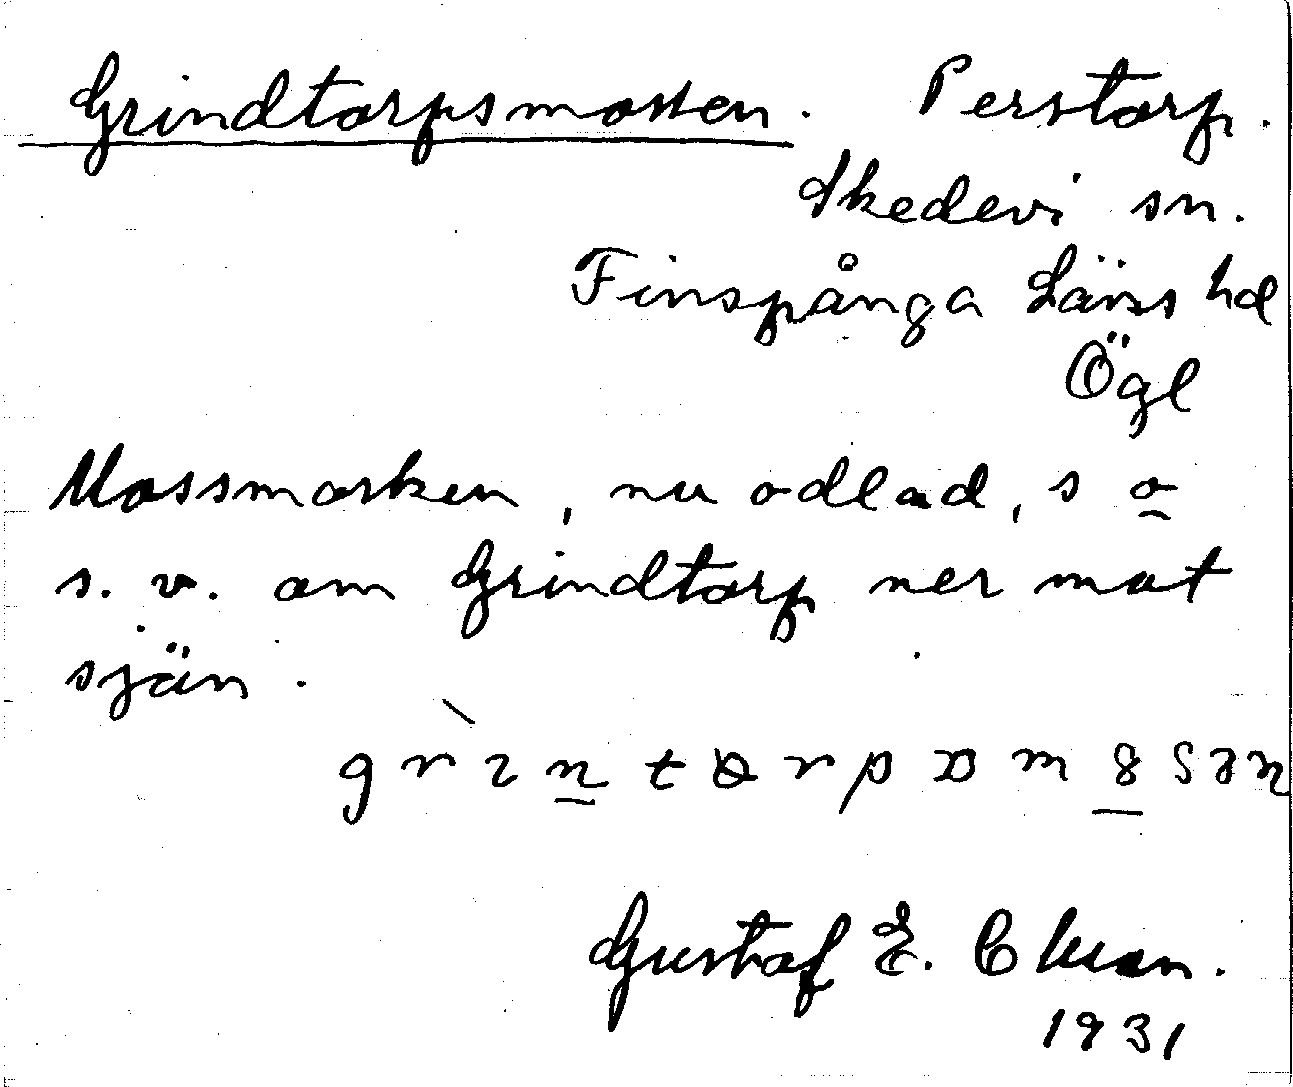 Grindtorpsmossen. Perstorp.
Skedevi sn.
Finspånga Läns hd
Ögl
Mossmarken, nu odlad, s o
s. v. om Grindtorp ner mot
sjön.
Gustaf E.
1931